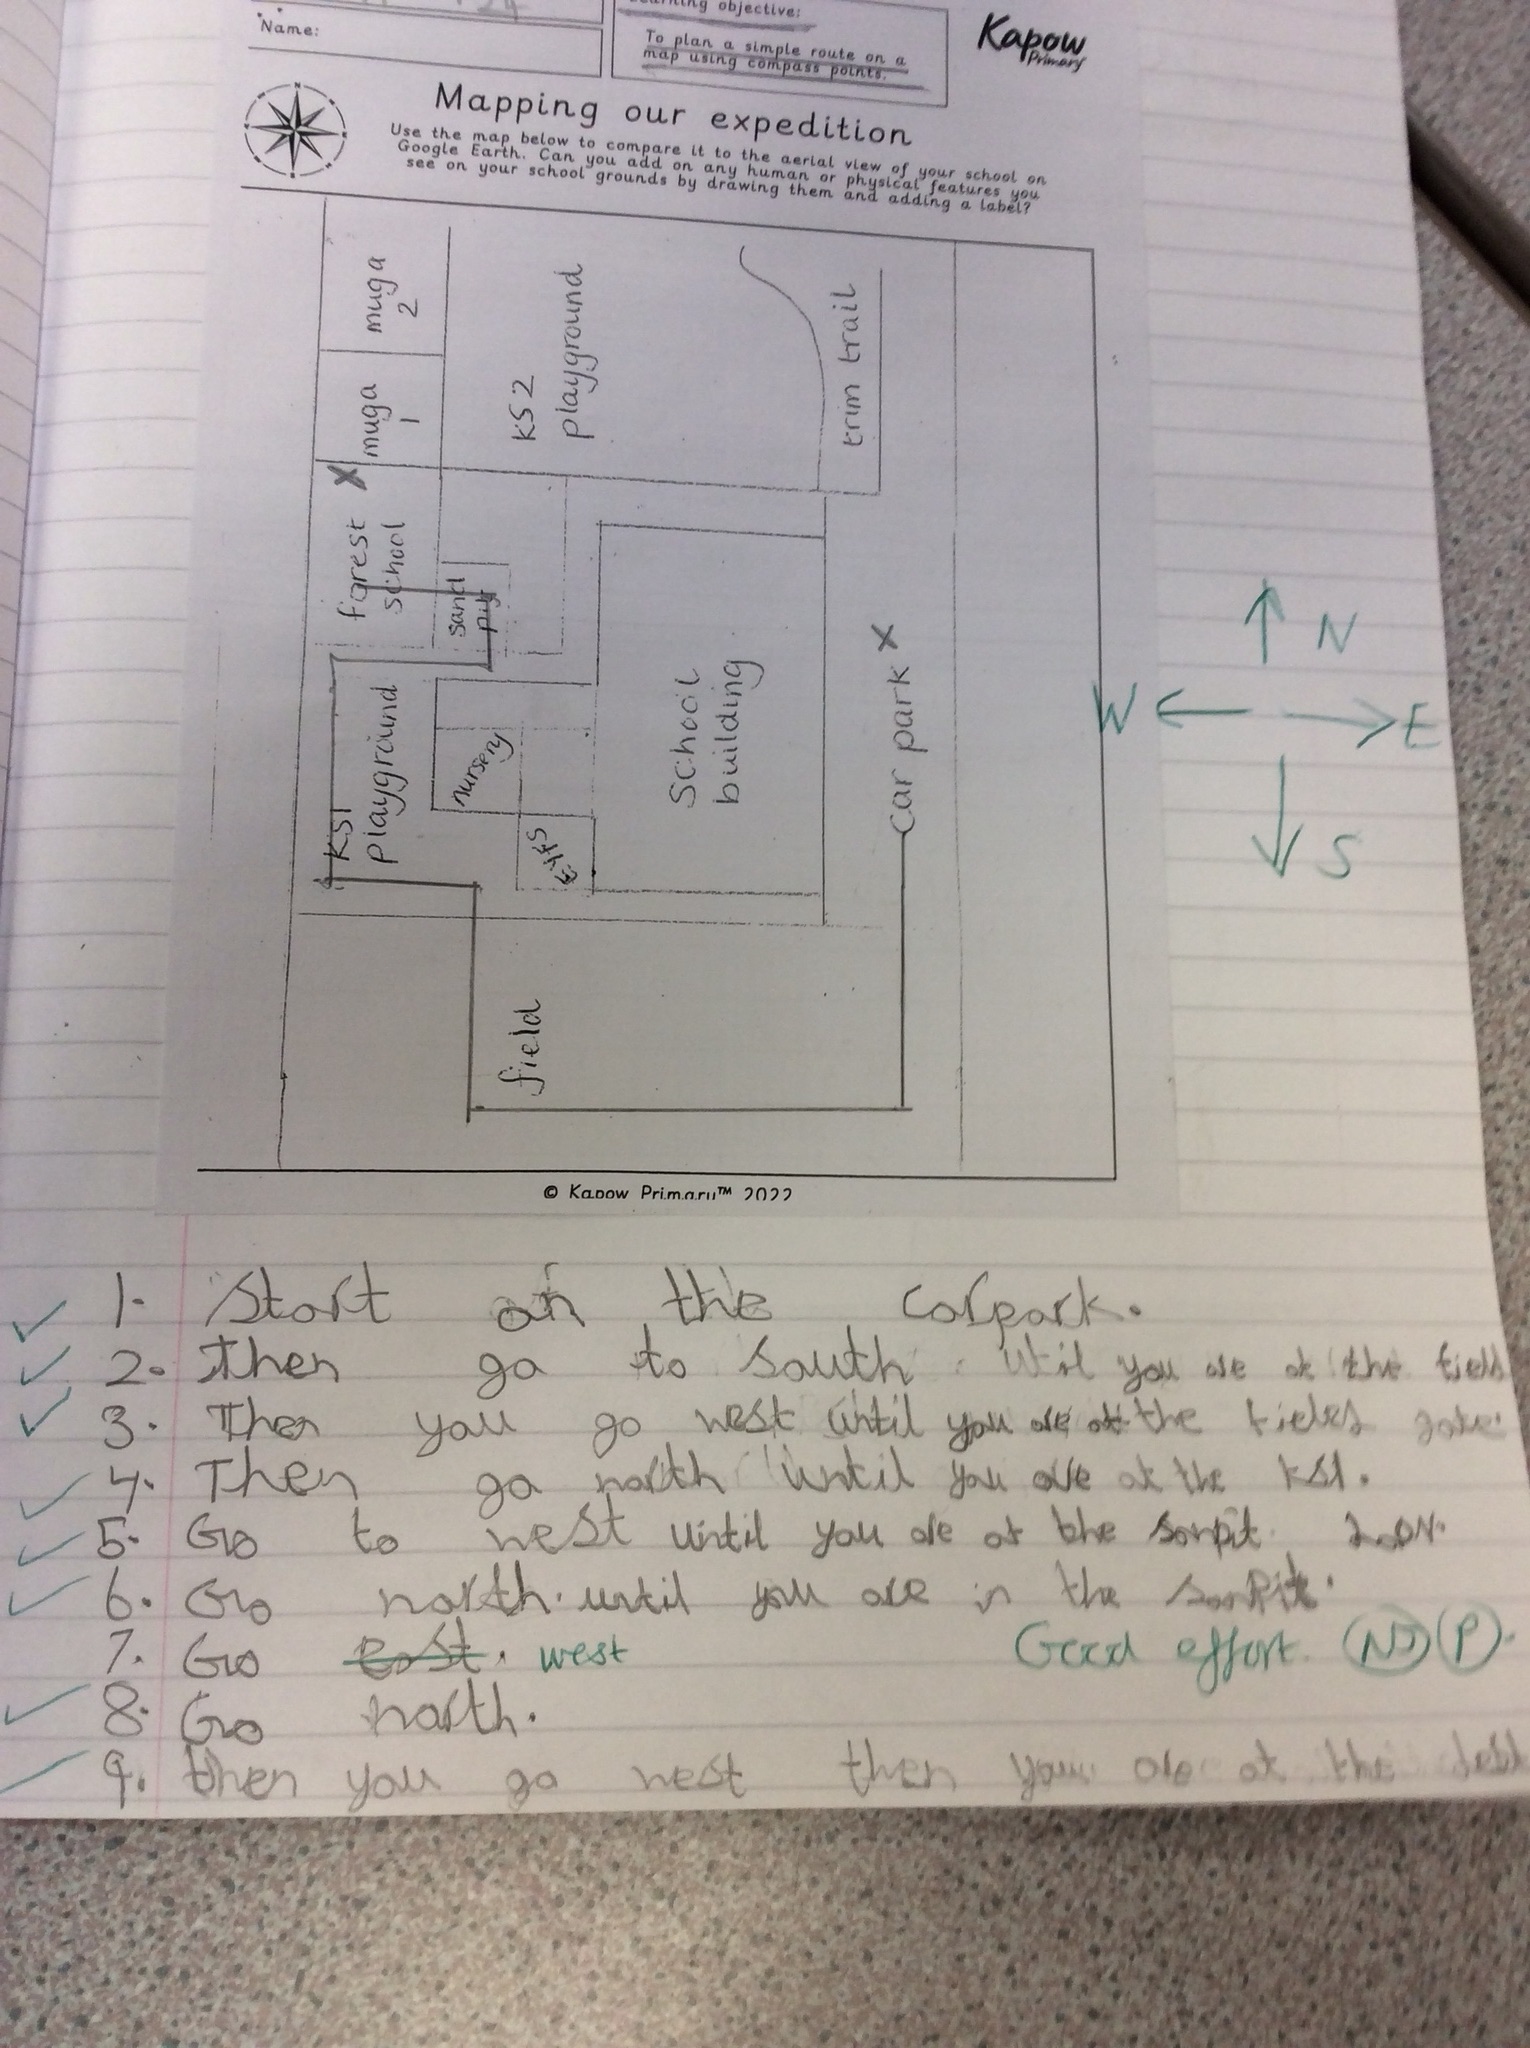 Learning objective:
To plan a simple route on a
map using compass points.
Name:
Kapow
Primary
Mapping our expedition
Use the map below to compare it to the aerial view of your school on
Google Earth. Can you add on any human or physical features you
see on your school grounds by drawing them and adding a label?
muga
2
muga
1
KS2
playground
trim trail
forest
school
X
sand
pit
KS1
playground
nursery
EYFS
School
building
Car park X
field
N
W
E
S
© Kapow Primary™ 2022
1. Start on the carpark.
2. Then go to south. Util you are at the field
3. Then you go west until you are at the fields
4. Then go north until you are at the KS1.
5. Go to west until you are at the sonpit.
6. Go north. until you are in the sonpit.
7. Go east. west
Good effort. P
8. Go north.
9. then you go west then you are at the